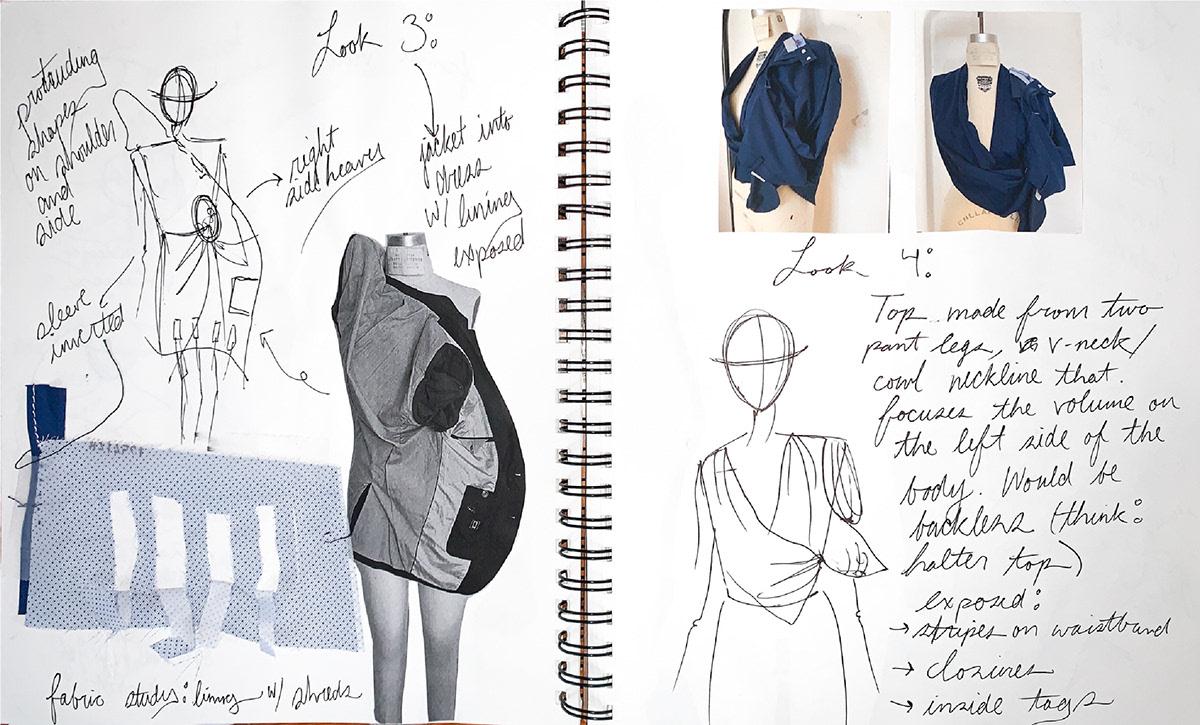 Look 3:
protruding
shapes
on shoulder
and
side
right
side heavy
jacket into
dress
w/ lining
exposed
sleeve
inverted
fabric study: lining w/ shreds
Look 4:
Top made from two
pant legs, v-neck/
cowl neckline that.
focuses the volume on
the left side of the
body. Would be
backless (think:
halter top)
exposed:
→ stripes on waistband
→ closures
→ inside tags